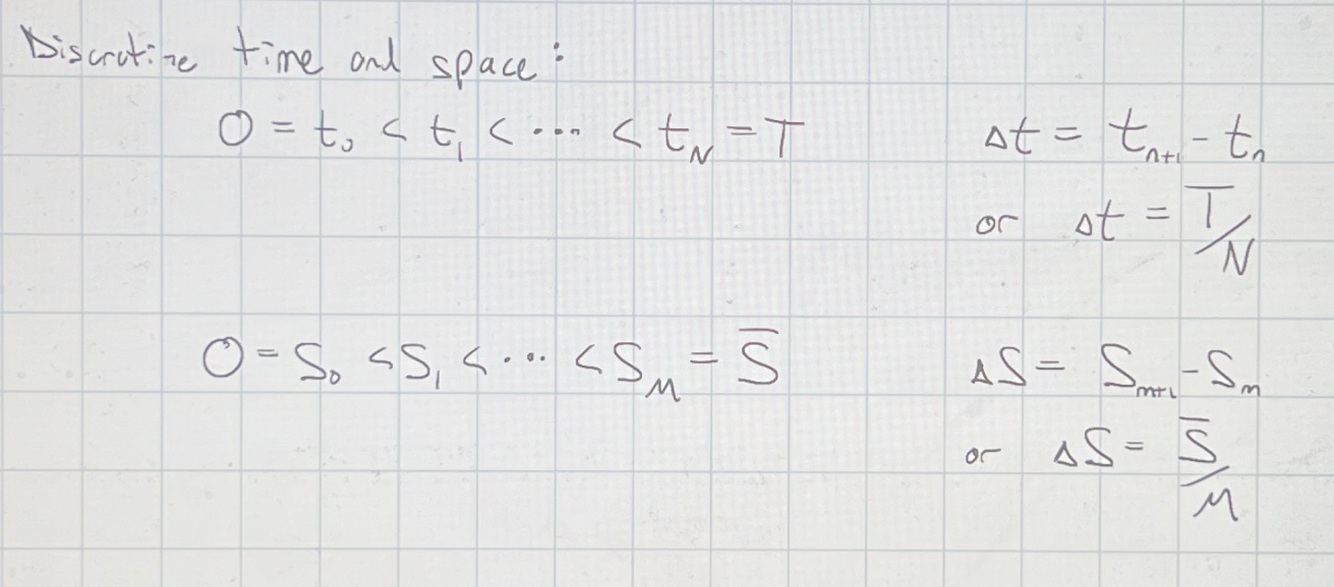 Discretize time and space:
0 = t₀ < t₁ < ··· < t_N = T Δt = t_{n+1} - t_n
or Δt = T/N
0 = S₀ < S₁ < ··· < S_M = S̅ ΔS = S_{m+1} - S_m
or ΔS = S̅/M